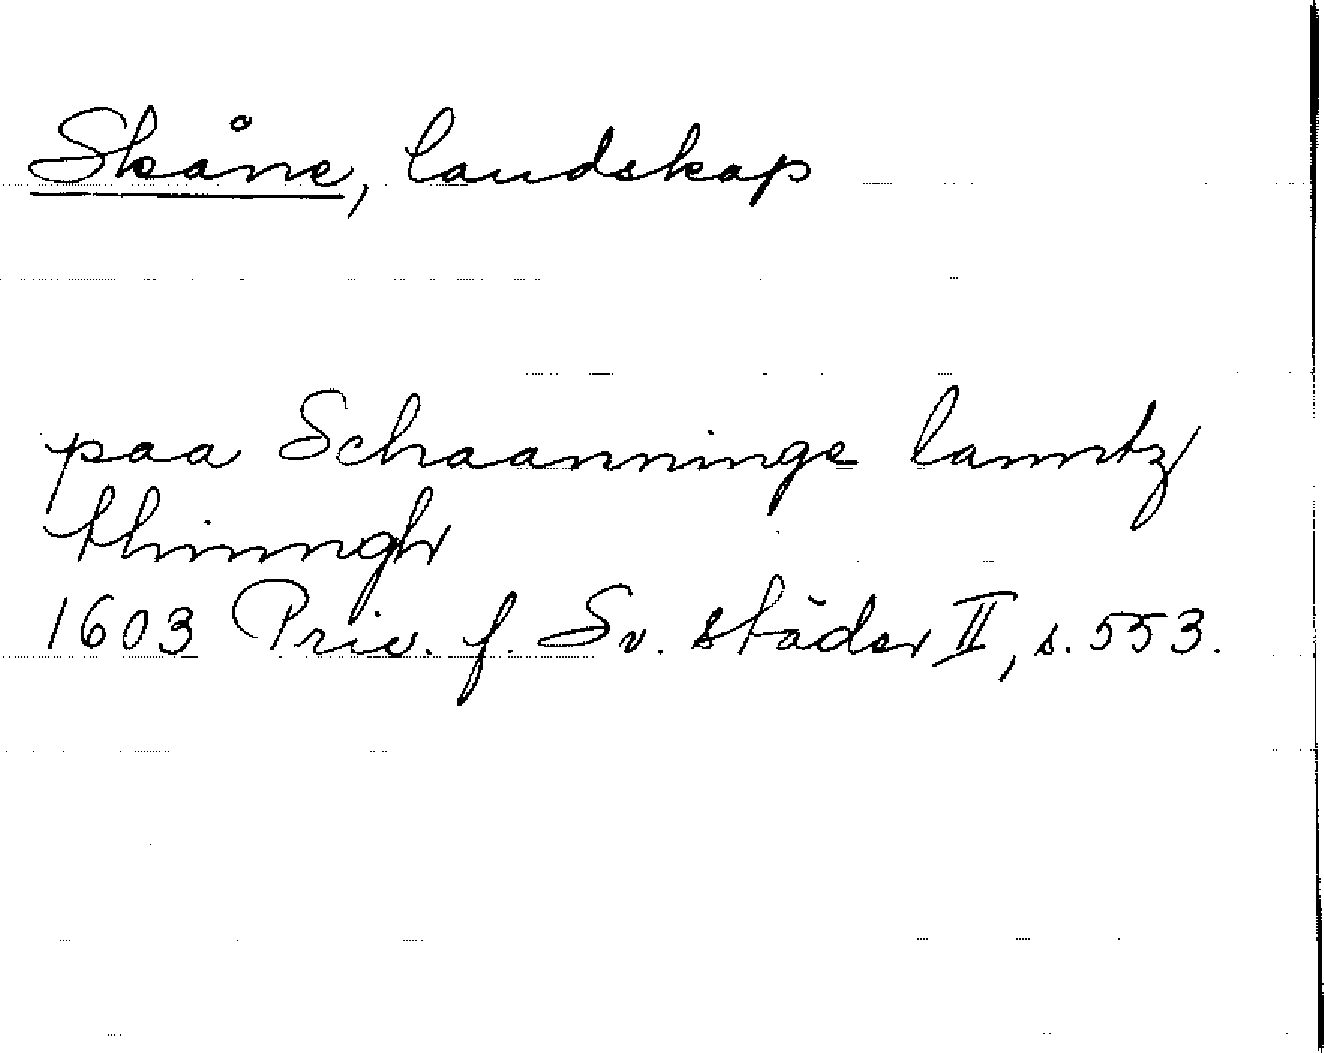 Skåne, landskap
paa Schaanninge lanntz
thinngh
1603 Priv. f. Sv. städer II, s. 553.